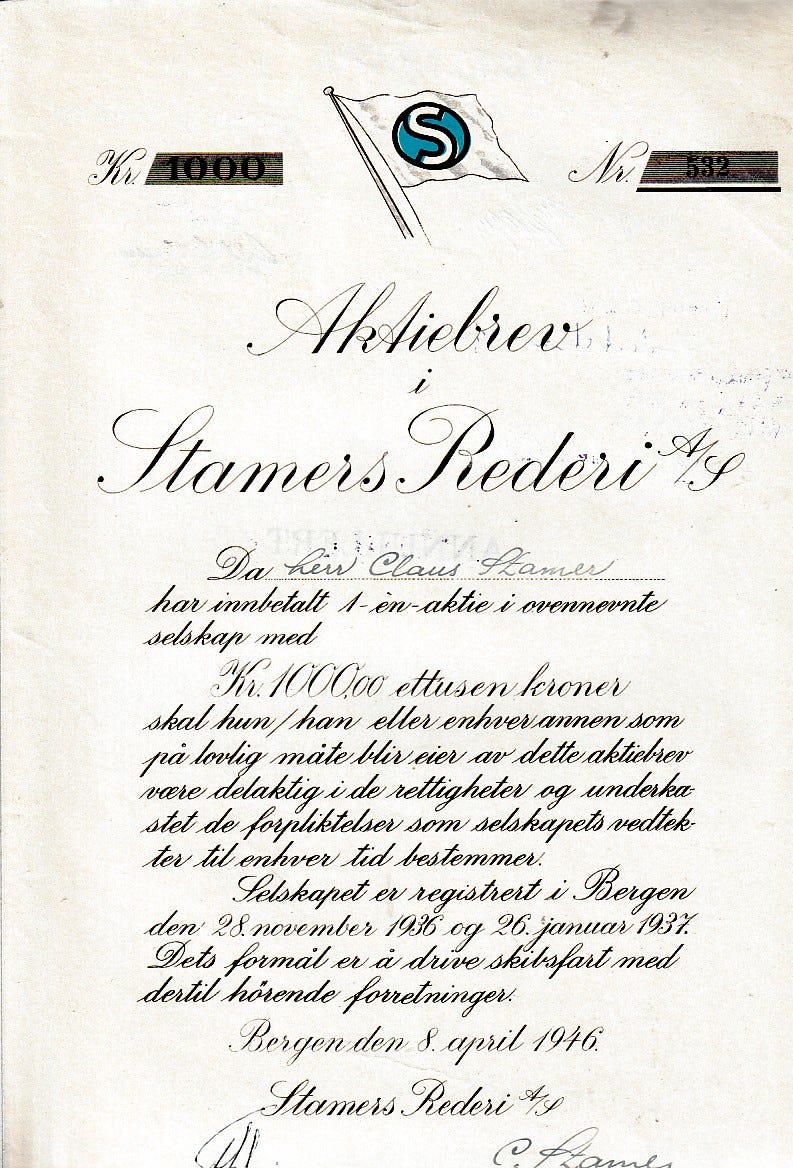 Kr. 1000
S
Nr. 532
Aktiebrev
i
Stamers Rederi A/S
ANNULLERT
Da herr Claus Stamer
har innbetalt 1-èn-aktie i ovennevnte
selskap med
Kr. 1000,00 ettusen kroner
skal hun/han eller enhver annen som
på lovlig måte blir eier av dette aktiebrev
være delaktig i de rettigheter og underka-
stet de forpliktelser som selskapets vedtek-
ter til enhver tid bestemmer.
Selskapet er registrert i Bergen
den 28. november 1936 og 26. januar 1937.
Dets formål er å drive skibsfart med
dertil hörende forretninger.
Bergen den 8. april 1946.
Stamers Rederi A/S
C. Stamer